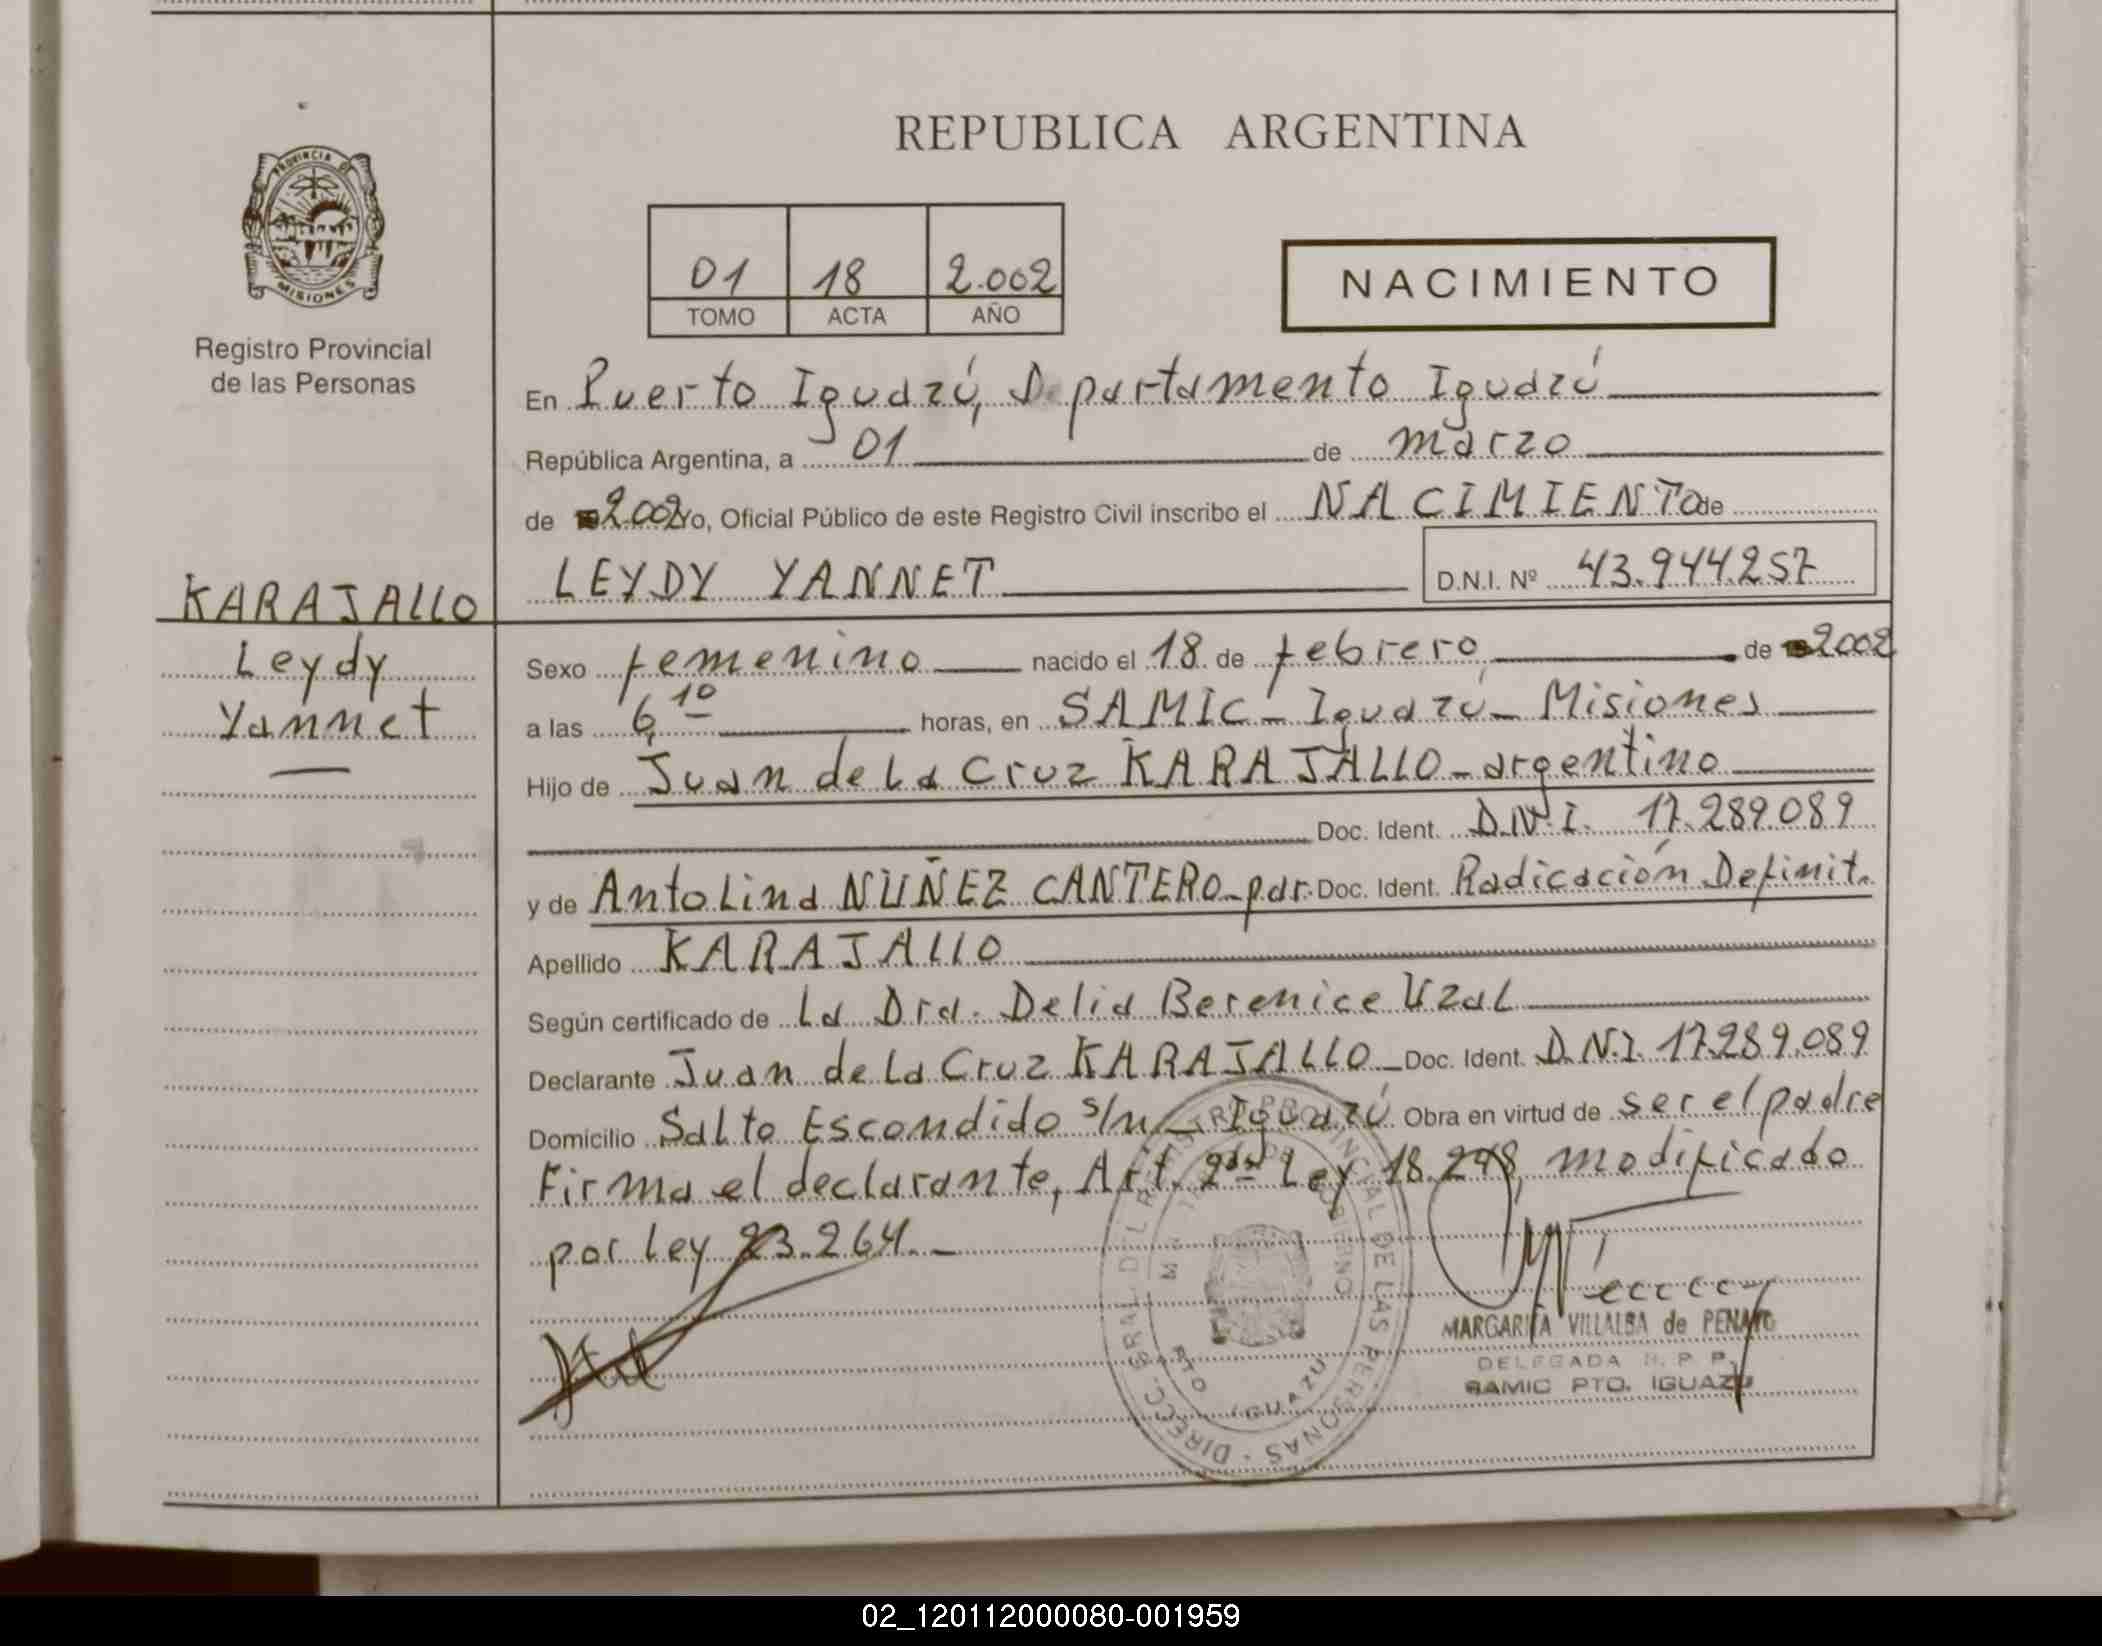 REPUBLICA ARGENTINA
PROVINCIA DE
MISIONES
Registro Provincial
de las Personas
01 18 2.002
TOMO ACTA AÑO
NACIMIENTO
En Puerto Iguazú, Departamento Iguazú
República Argentina, a 01 de marzo
de 2002 Yo, Oficial Público de este Registro Civil inscribo el NACIMIENTO de
LEYDY YANNET D.N.I. Nº 43.944.257
KARAJALLO
Leydy
Yannet
Sexo femenino nacido el 18 de febrero de 2002
a las 6,10 horas, en SAMIC - Iguazú - Misiones
Hijo de Juan de la Cruz KARAJALLO - argentino
Doc. Ident. D.N.I. 17.289.089
y de Antolina NUÑEZ CANTERO - par. Doc. Ident. Radicación Definit.
Apellido KARAJALLO
Según certificado de La Dra. Delia Berenice Uzal
Declarante Juan de la Cruz KARAJALLO - Doc. Ident. D.N.I. 17.289.089
Domicilio Salto Escondido s/n - Iguazú Obra en virtud de ser el padre
Firma el declarante, Art. 2do Ley 18.248, modificado
por Ley 23.264. -
DIRECC. GRAL. DEL REGISTRO PROVINCIAL DE LAS PERSONAS
PTO IGUAZU
MARGARITA VILLALBA de PENAYO
DELEGADA R. P. P.
SAMIC PTO. IGUAZU
02_120112000080-001959